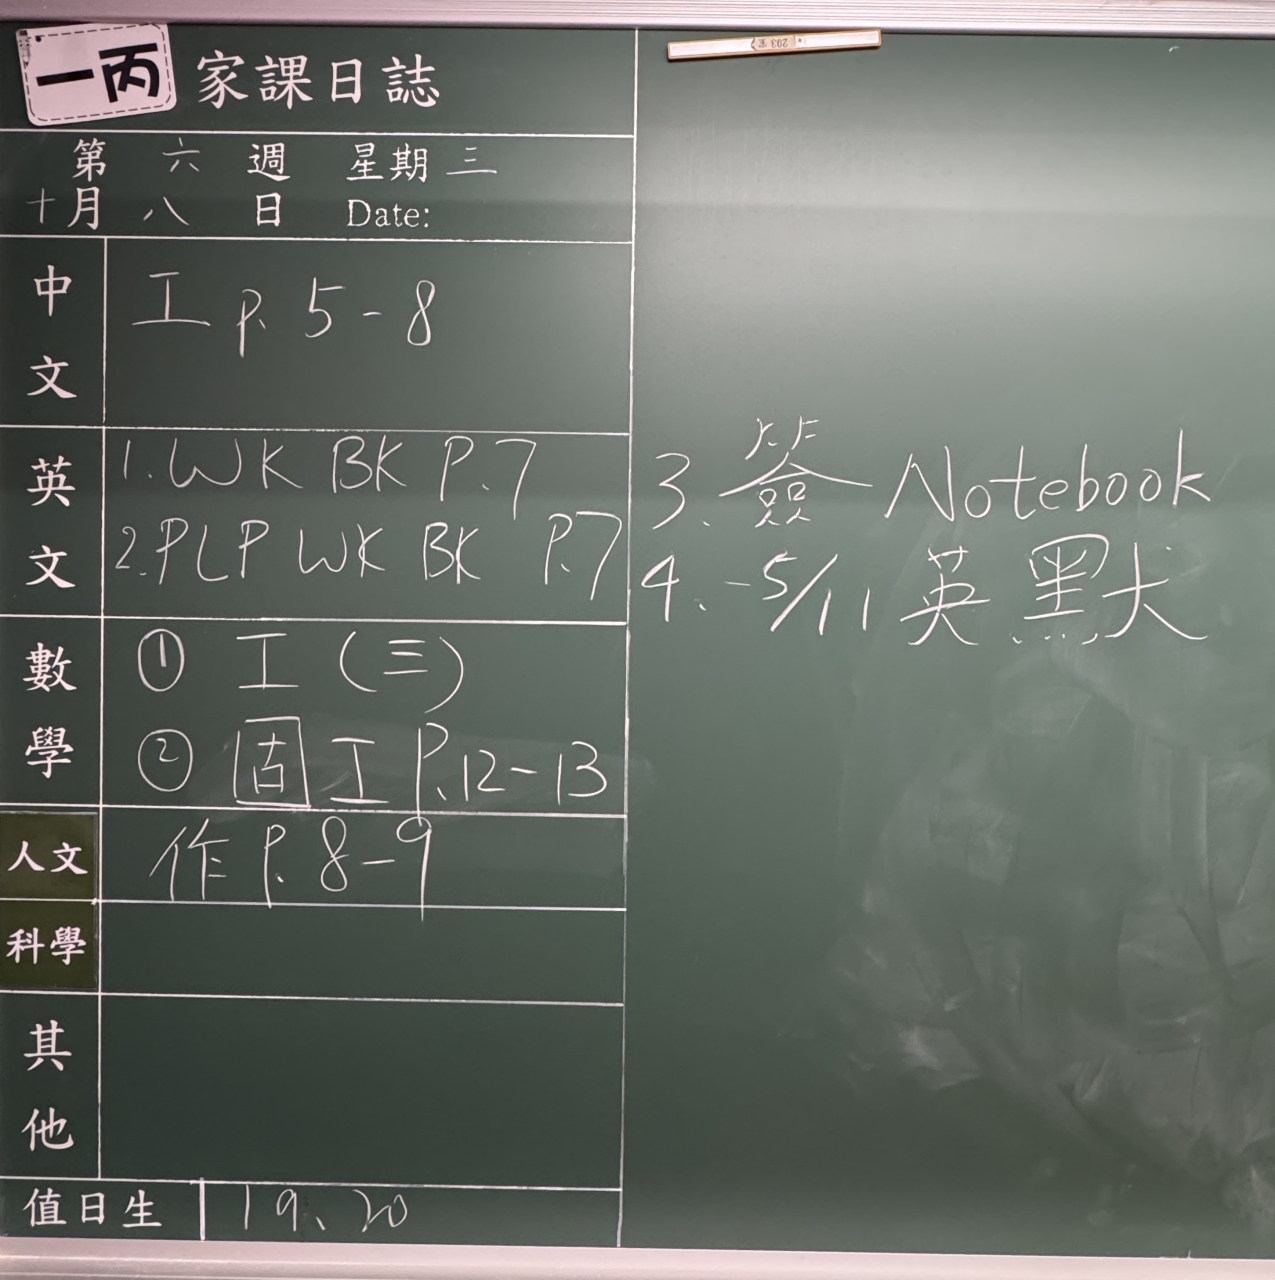 一丙 家課日誌
第 六 週 星期 三
十月 八 日 Date:
中文 工 P. 5-8
英文 1. WK BK P.7
2. PLP WK BK P.7
3. 簽 Notebook
4. -5/11 英 默
數學 ① 工 (三)
② 固 工 P.12-13
人文 作 P. 8-9
科學
其他
值日生 19、20